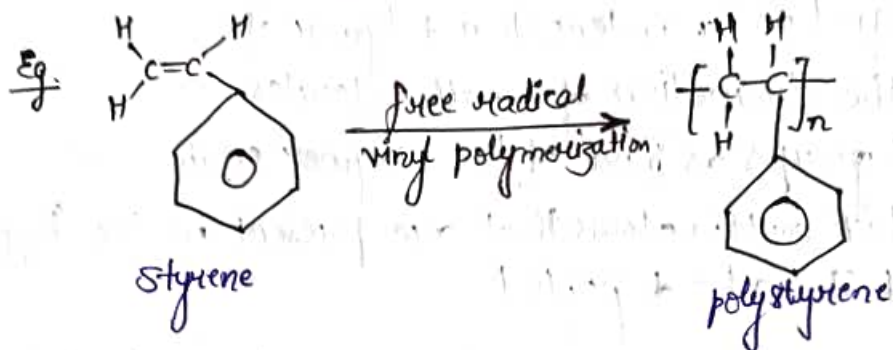 Eg.
H H
C=C
H
free radical
vinyl polymerization
H H
[ C - C ]n
H
styrene
polystyrene